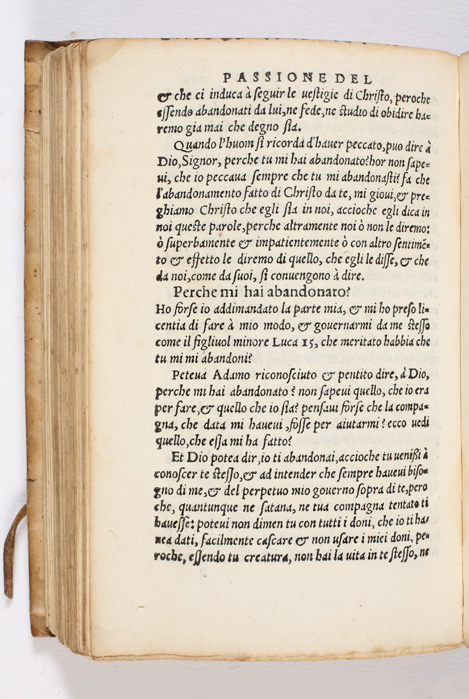 PASSIONE DEL
& che ci induca à seguir le uestigie di Christo, peroche
essendo abandonati da lui, ne fede, ne studio di obidire ha=
remo gia mai che degno sia.
Quando l'huom si ricorda d'hauer peccato, puo dire à
Dio, Signor, perche tu mi hai abandonato? hor non sape=
ui, che io peccaua sempre che tu mi abandonasti? fa che
l'abandonamento fatto di Christo da te, mi gioui, & pre=
ghiamo Christo che egli stia in noi, accioche egli dica in
noi queste parole, perche altramente noi ò non le diremo:
ò superbamente & impatientemente ò con altro sentimē=
to & effetto le diremo di quello, che egli le disse, & che
da noi, come da suoi, si conuengono à dire.
Perche mi hai abandonato?
Ho forse io addimandato la parte mia, & mi ho preso li=
centia di fare à mio modo, & gouernarmi da me stesso
come il figliuol minore Luca 15, che meritato habbia che
tu mi mi abandoni?
Peteua Adamo riconosciuto & pentito dire, à Dio,
perche mi hai abandonato? non sapeui quello, che io era
per fare, & quello che io sia? pensaui forse che la compa=
gna, che data mi haueui, fosse per aiutarmi? ecco uedi
quello, che essa mi ha fatto?
Et Dio potea dir, io ti abandonai, accioche tu uenissi à
conoscer te stesso, & ad intender che sempre haueui biso=
gno di me, & del perpetuo mio gouerno sopra di te, pero
che, quantunque ne satana, ne tua compagna tentato ti
hauesse: poteui non dimen tu con tutti i doni, che io ti ha=
uea dati, facilmente cascare & non usare i miei doni, pe=
roche, essendo tu creatura, non hai la uita in te stesso, ne